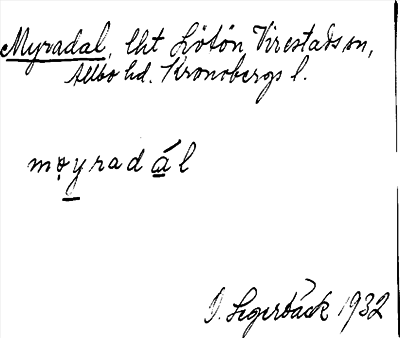 Myradal, lht Sötön Virestads sn,
Allbo hd. Kronobergs l.
mo̤yradál
J. Segerbäck 1932